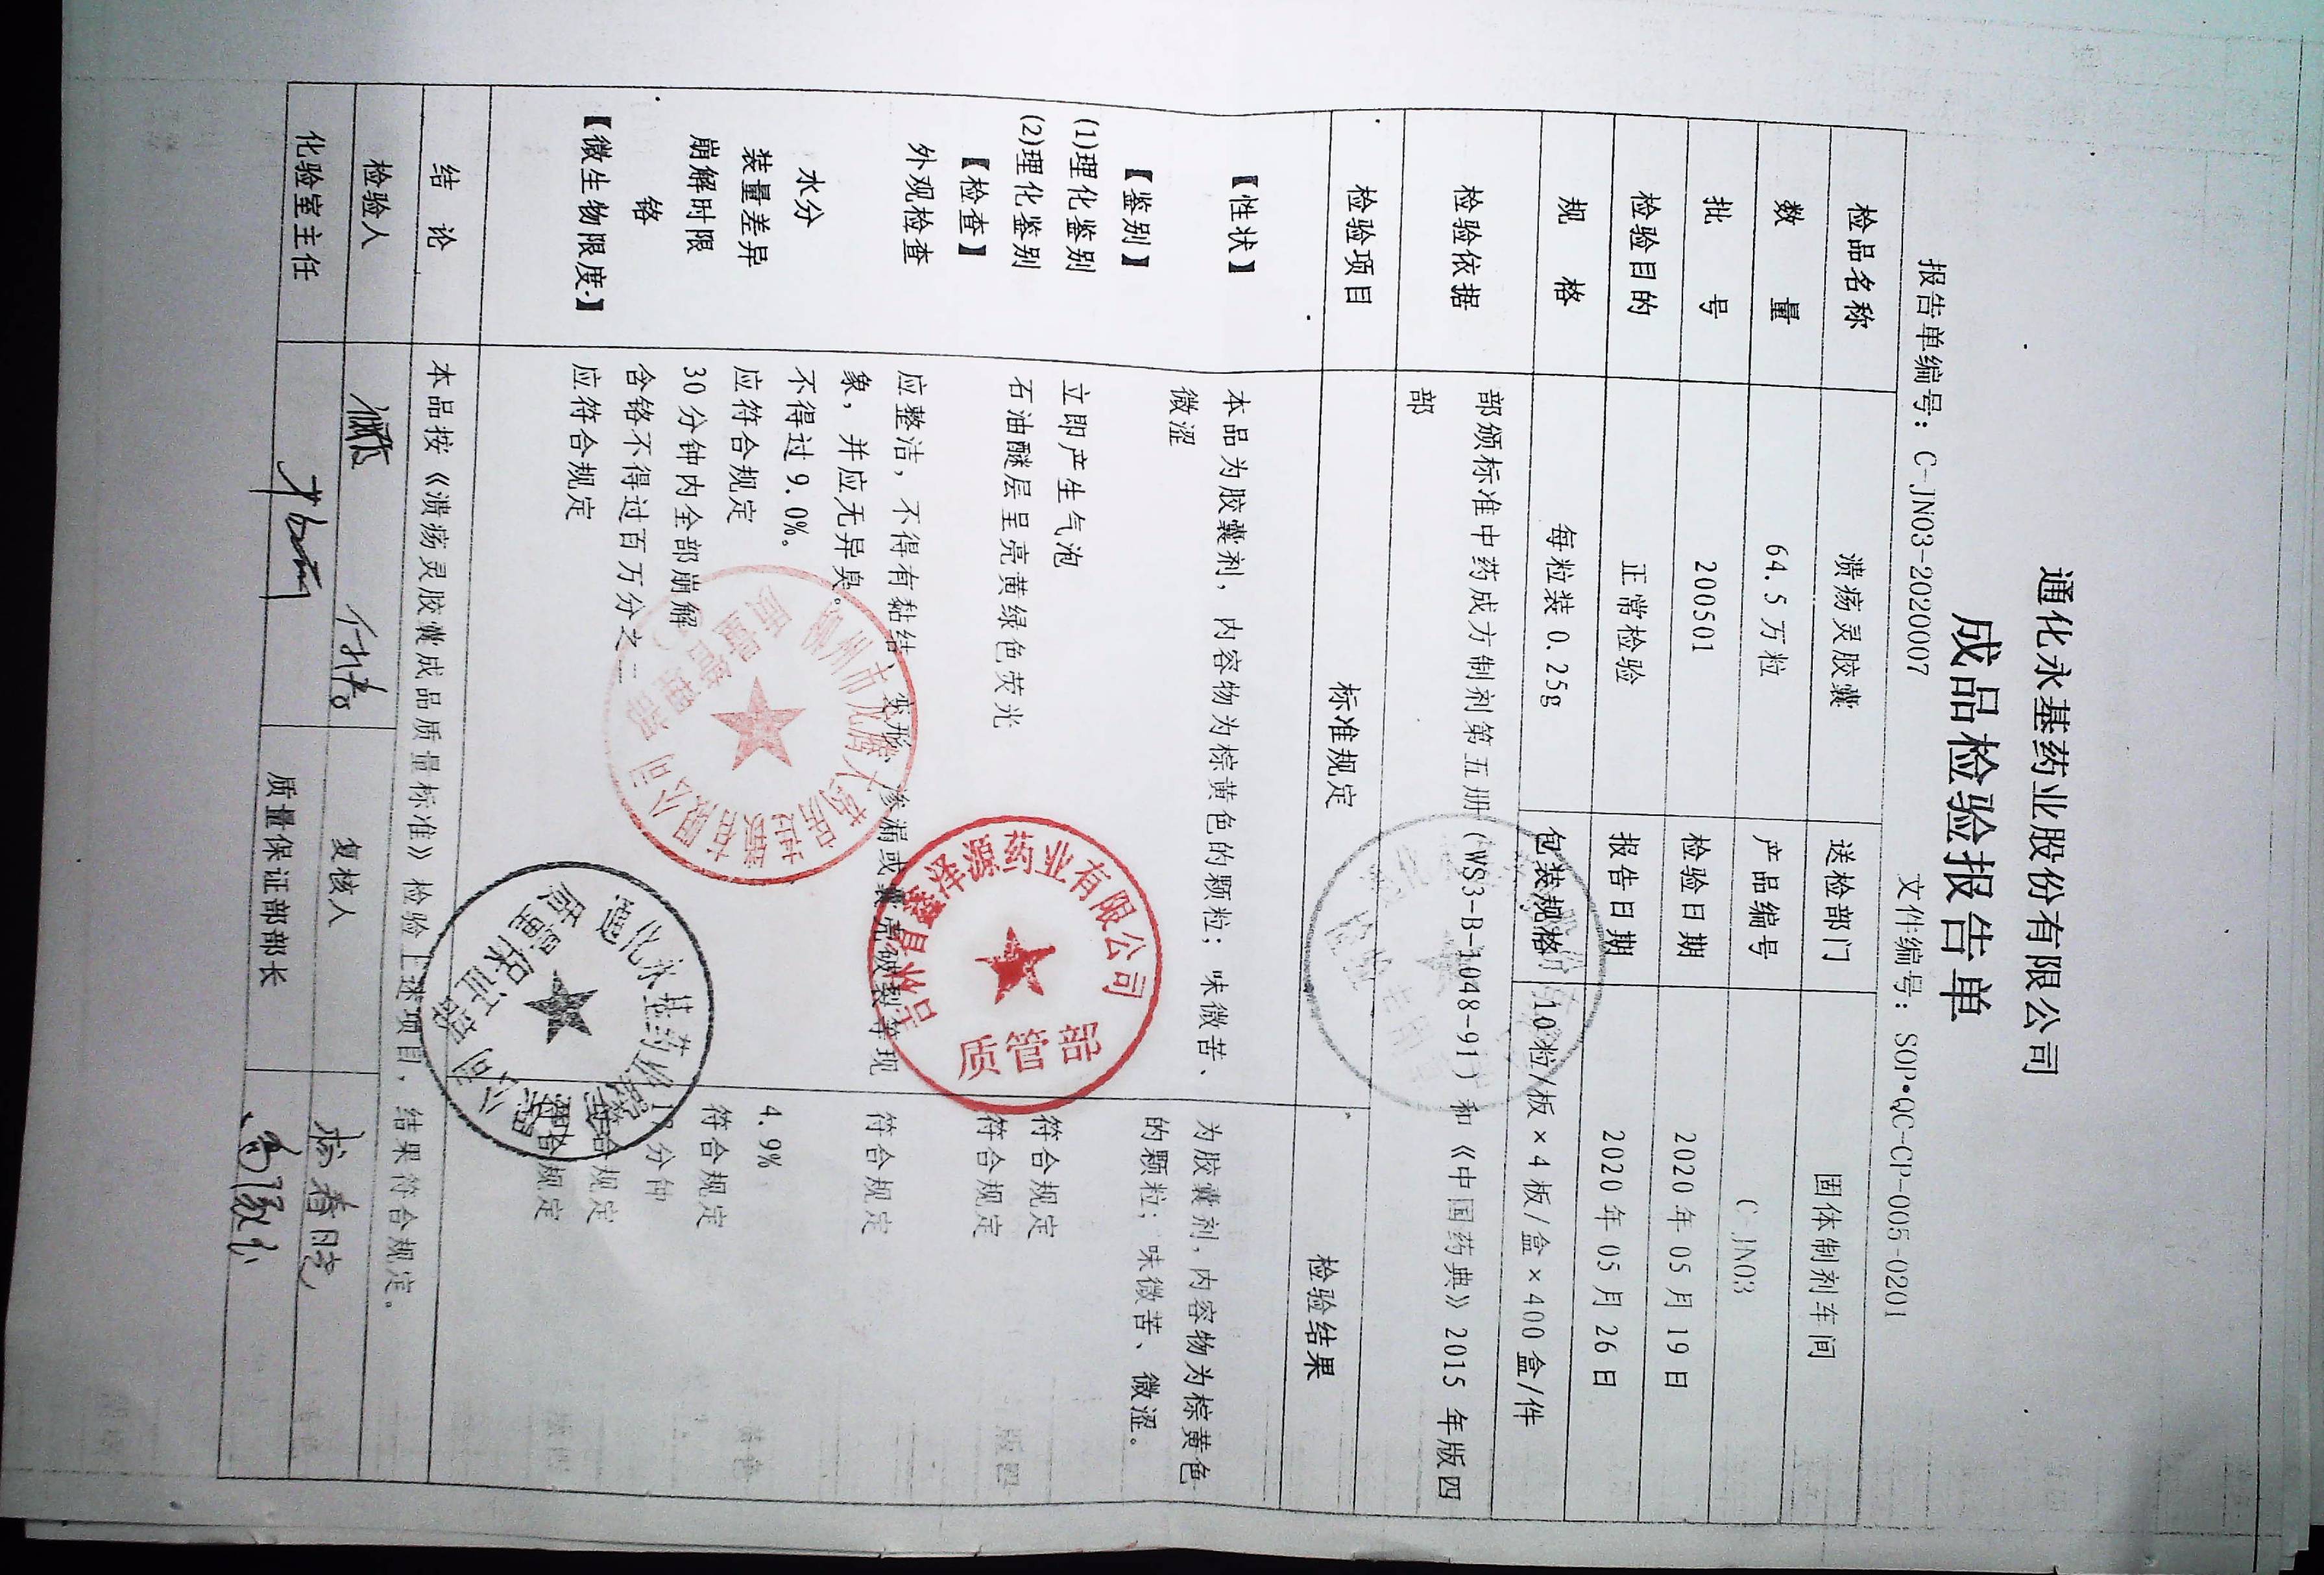 通化永基药业股份有限公司
成品检验报告单
报告单编号：C-JN03-2020007 文件编号：SOP•QC-CP-005-0201
检品名称 溃疡灵胶囊 送检部门 固体制剂车间
数 量 64.5万粒 产品编号 C-JN03
批 号 200501 检验日期 2020年05月19日
检验目的 正常检验 报告日期 2020年05月26日
规 格 每粒装0.25g 包装规格 10粒/板×4板/盒×400盒/件
检验依据 部颁标准中药成方制剂第五册（WS3-B-1048-91）和《中国药典》2015年版四
部
检验项目 标准规定 检验结果
【性状】 本品为胶囊剂，内容物为棕黄色的颗粒；味微苦、 为胶囊剂，内容物为棕黄色
微涩 的颗粒；味微苦、微涩。
【鉴别】
(1)理化鉴别 立即产生气泡 符合规定
(2)理化鉴别 石油醚层呈亮黄绿色荧光 符合规定
【检查】
外观检查 应整洁，不得有黏结、变形、渗漏或囊壳破裂等现 符合规定
象，并应无异臭。
水分 不得过9.0%。 4.9%
装量差异 应符合规定 符合规定
崩解时限 30分钟内全部崩解 分钟
铬 含铬不得过百万分之二 符合规定
【微生物限度】 应符合规定 符合规定
结 论 本品按《溃疡灵胶囊成品质量标准》检验上述项目，结果符合规定。
检验人 复核人
化验室主任 质量保证部部长
泽源药业有限公司
质管部
柳州市龙腾大药房连锁有限公司
质量管理部
通化永基药业
公司
质量保证部